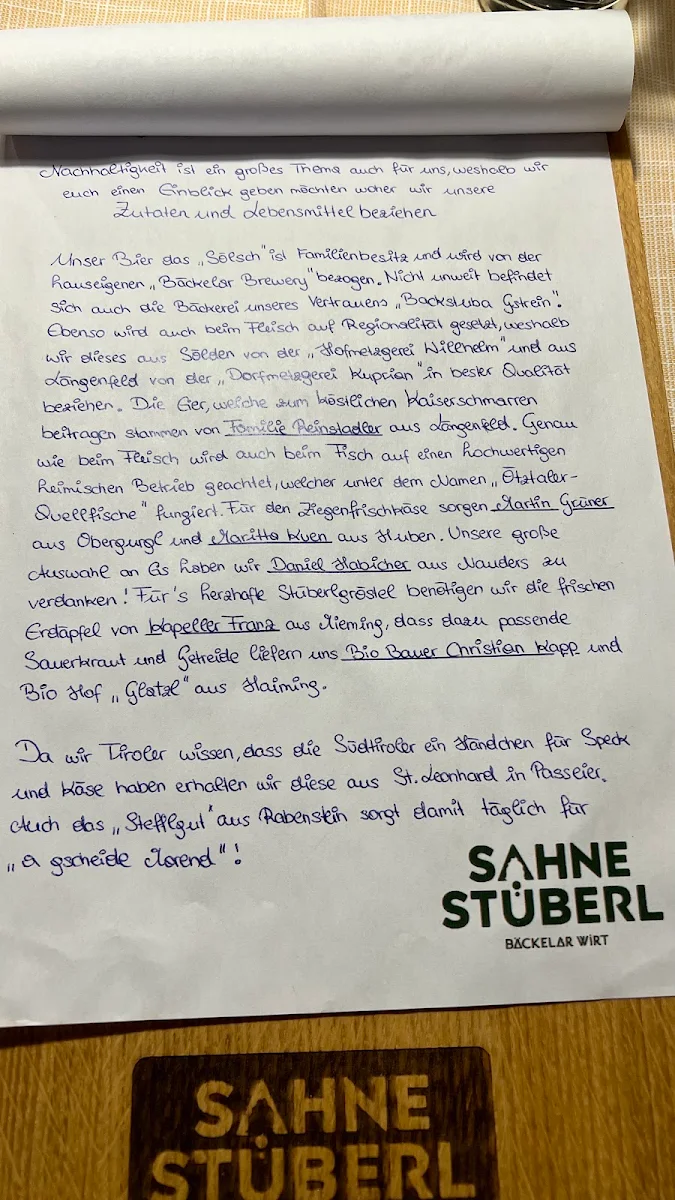 Nachhaltigkeit ist ein großes Thema auch für uns, weshalb wir
euch einen Einblick geben möchten woher wir unsere
Zutaten und Lebensmittel beziehen
Unser Bier das „Sölsch" ist Familienbesitz und wird von der
hauseigenen „Bäckelar Brewery" bezogen. Nicht unweit befindet
sich auch die Bäckerei unseres Vertrauens „Backstuba Gstrein".
Ebenso wird auch beim Fleisch auf Regionalität gesetzt, weshalb
wir dieses aus Sölden von der „Hofmetzgerei Willhelm" und aus
Längenfeld von der „Dorfmetzgerei Kuprian" in bester Qualität
beziehen. Die Eier, welche zum köstlichen Kaiserschmarren
beitragen stammen von Familie Reinstadler aus Längenfeld. Genau
wie beim Fleisch wird auch beim Fisch auf einen hochwertigen
heimischen Betrieb geachtet, welcher unter dem Namen „Ötztaler-
Quellfische" fungiert. Für den Ziegenfrischkäse sorgen Martin Grüner
aus Obergurgl und Maritta Kuen aus Huben. Unsere große
Auswahl an Eis haben wir Daniel Habicher aus Nauders zu
verdanken! Für's herzhafte Stüberlgröstel benötigen wir die frischen
Erdäpfel von Kapeller Franz aus Mieming, dass dazu passende
Sauerkraut und Getreide liefern uns Bio Bauer Christian Kapp und
Bio Hof „Glatzl" aus Haiming.
Da wir Tiroler wissen, dass die Südtiroler ein Händchen für Speck
und Käse haben erhalten wir diese aus St. Leonhard in Passeier.
Auch das „Stefflgut" aus Rabenstein sorgt damit täglich für
„a gscheide Marend"!
SAHNE
STÜBERL
BÄCKELAR WIRT
SAHNE
STÜBERL